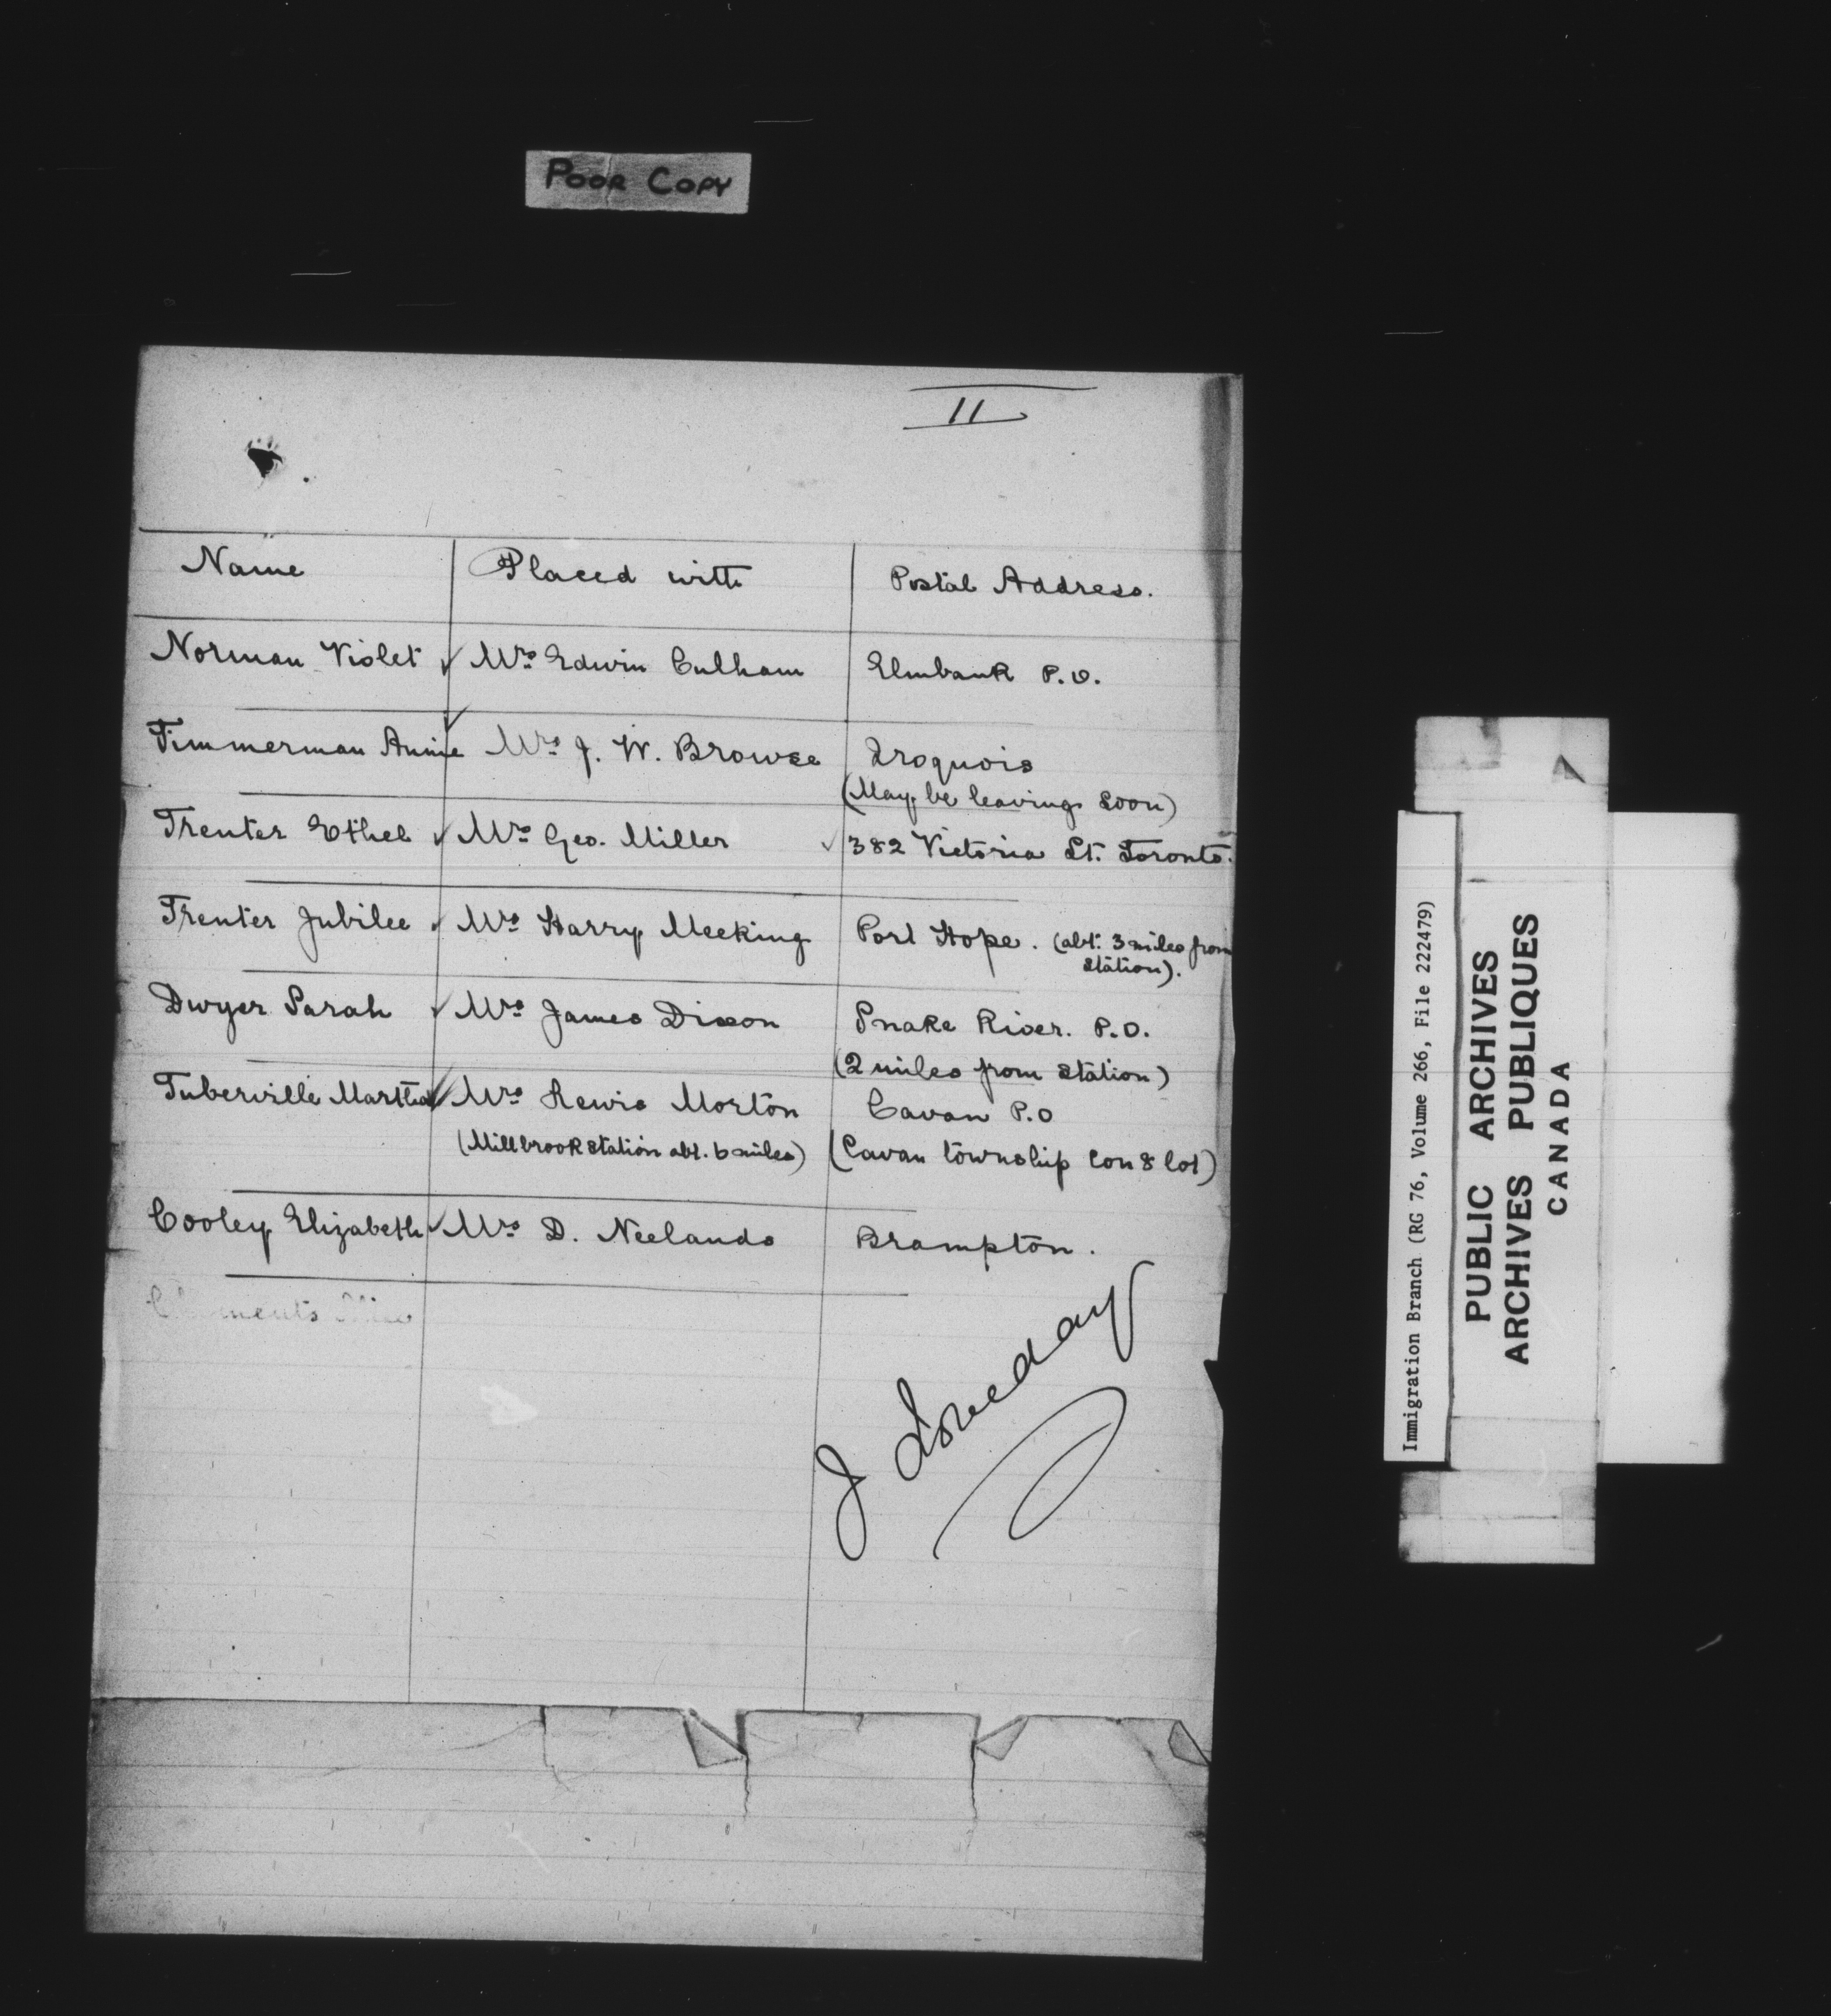 POOR COPY
11
Name Placed with Postal Address.
Norman Violet ✓ Mrs Edwin Culham Elmbank P.O.
Timmerman Annie ✓ Mrs J. W. Browse Iroquois
(May be leaving soon)
Trenter Ethel ✓ Mrs Geo. Miller ✓ 382 Victoria St. Toronto.
Trenter Jubilee ✓ Mrs Harry Meeking Port Hope. (abt. 3 miles from
station).
Dwyer Sarah ✓ Mrs James Dixon Snake River. P.O.
(2 miles from station)
Tuberville Martha ✓ Mrs Lewis Morton Cavan P.O
(Millbrook station abt. 6 miles) (Cavan township con 8 lot)
Cooley Elizabeth ✓ Mrs D. Neelands Brampton.
Clements Alice
J Loveday
Immigration Branch (RG 76, Volume 266, File 222479)
PUBLIC ARCHIVES
ARCHIVES PUBLIQUES
CANADA